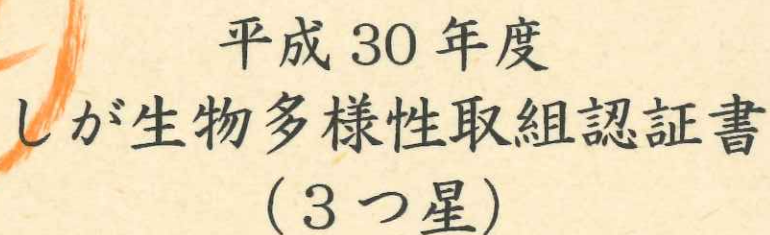 平成30年度
しが生物多様性取組認証書
(3つ星)